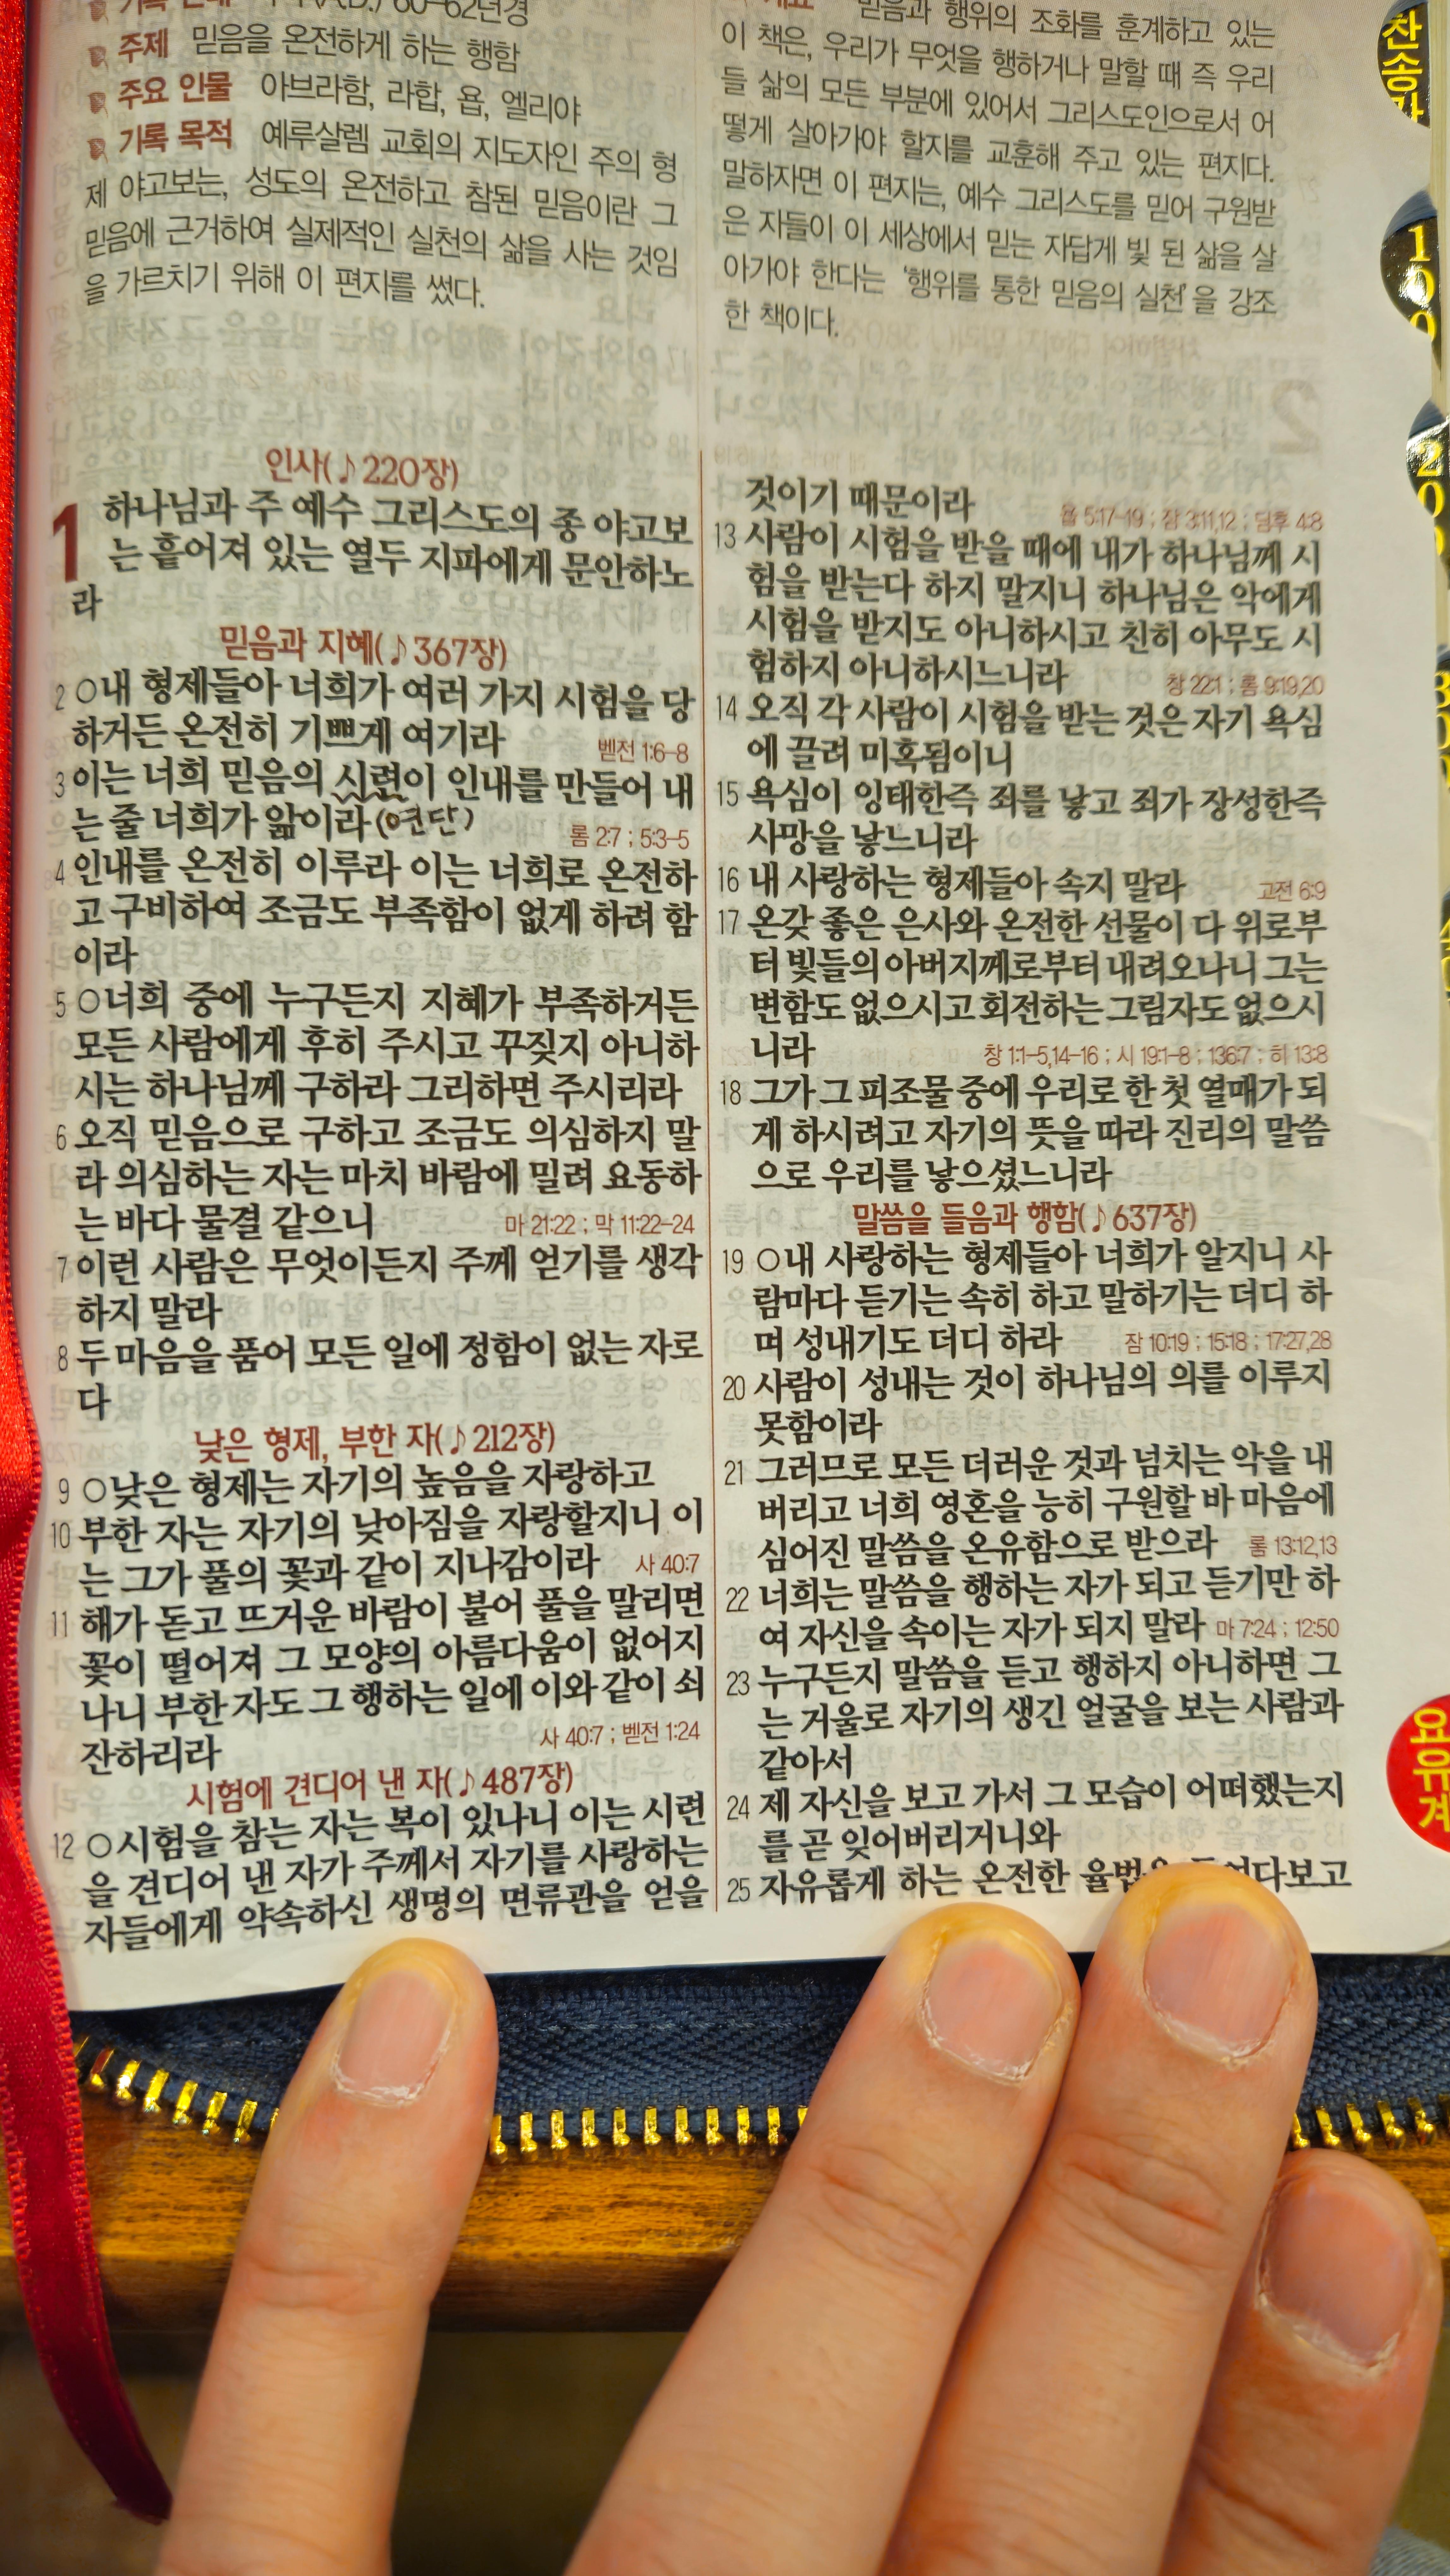 60-62년경
주제 믿음을 온전하게 하는 행함
주요 인물 아브라함, 라합, 욥, 엘리야
기록 목적 예루살렘 교회의 지도자인 주의 형
제 야고보는, 성도의 온전하고 참된 믿음이란 그
믿음에 근거하여 실제적인 실천의 삶을 사는 것임
을 가르치기 위해 이 편지를 썼다.
믿음과 행위의 조화를 훈계하고 있는
이 책은, 우리가 무엇을 행하거나 말할 때 즉 우리
들 삶의 모든 부분에 있어서 그리스도인으로서 어
떻게 살아가야 할지를 교훈해 주고 있는 편지다.
말하자면 이 편지는, 예수 그리스도를 믿어 구원받
은 자들이 이 세상에서 믿는 자답게 빛 된 삶을 살
아가야 한다는 '행위를 통한 믿음의 실천'을 강조
한 책이다.
인사(♪220장)
1 하나님과 주 예수 그리스도의 종 야고보
는 흩어져 있는 열두 지파에게 문안하노
라
믿음과 지혜(♪367장)
2 ○내 형제들아 너희가 여러 가지 시험을 당
하거든 온전히 기쁘게 여기라 벧전 1:6-8
3 이는 너희 믿음의 시련이 인내를 만들어 내
는 줄 너희가 앎이라 (연단) 롬 2:7 ; 5:3-5
4 인내를 온전히 이루라 이는 너희로 온전하
고 구비하여 조금도 부족함이 없게 하려 함
이라
5 ○너희 중에 누구든지 지혜가 부족하거든
모든 사람에게 후히 주시고 꾸짖지 아니하
시는 하나님께 구하라 그리하면 주시리라
6 오직 믿음으로 구하고 조금도 의심하지 말
라 의심하는 자는 마치 바람에 밀려 요동하
는 바다 물결 같으니 마 21:22 ; 막 11:22-24
7 이런 사람은 무엇이든지 주께 얻기를 생각
하지 말라
8 두 마음을 품어 모든 일에 정함이 없는 자로
다
낮은 형제, 부한 자(♪212장)
9 ○낮은 형제는 자기의 높음을 자랑하고
10 부한 자는 자기의 낮아짐을 자랑할지니 이
는 그가 풀의 꽃과 같이 지나감이라 사 40:7
11 해가 돋고 뜨거운 바람이 불어 풀을 말리면
꽃이 떨어져 그 모양의 아름다움이 없어지
나니 부한 자도 그 행하는 일에 이와 같이 쇠
잔하리라 사 40:7 ; 벧전 1:24
시험에 견디어 낸 자(♪487장)
12 ○시험을 참는 자는 복이 있나니 이는 시련
을 견디어 낸 자가 주께서 자기를 사랑하는
자들에게 약속하신 생명의 면류관을 얻을
것이기 때문이라 욥 5:17-19 ; 잠 3:11,12 ; 딤후 4:8
13 사람이 시험을 받을 때에 내가 하나님께 시
험을 받는다 하지 말지니 하나님은 악에게
시험을 받지도 아니하시고 친히 아무도 시
험하지 아니하시느니라 창 22:1 ; 롬 9:19,20
14 오직 각 사람이 시험을 받는 것은 자기 욕심
에 끌려 미혹됨이니
15 욕심이 잉태한즉 죄를 낳고 죄가 장성한즉
사망을 낳느니라
16 내 사랑하는 형제들아 속지 말라 고전 6:9
17 온갖 좋은 은사와 온전한 선물이 다 위로부
터 빛들의 아버지께로부터 내려오나니 그는
변함도 없으시고 회전하는 그림자도 없으시
니라 창 1:1-5,14-16 ; 시 19:1-8 ; 136:7 ; 히 13:8
18 그가 그 피조물 중에 우리로 한 첫 열매가 되
게 하시려고 자기의 뜻을 따라 진리의 말씀
으로 우리를 낳으셨느니라
말씀을 들음과 행함(♪637장)
19 ○내 사랑하는 형제들아 너희가 알지니 사
람마다 듣기는 속히 하고 말하기는 더디 하
며 성내기도 더디 하라 잠 10:19 ; 15:18 ; 17:27,28
20 사람이 성내는 것이 하나님의 의를 이루지
못함이라
21 그러므로 모든 더러운 것과 넘치는 악을 내
버리고 너희 영혼을 능히 구원할 바 마음에
심어진 말씀을 온유함으로 받으라 롬 13:12,13
22 너희는 말씀을 행하는 자가 되고 듣기만 하
여 자신을 속이는 자가 되지 말라 마 7:24 ; 12:50
23 누구든지 말씀을 듣고 행하지 아니하면 그
는 거울로 자기의 생긴 얼굴을 보는 사람과
같아서
24 제 자신을 보고 가서 그 모습이 어떠했는지
를 곧 잊어버리거니와
25 자유롭게 하는 온전한 율법을 들여다보고
찬송가
100
200
요유계